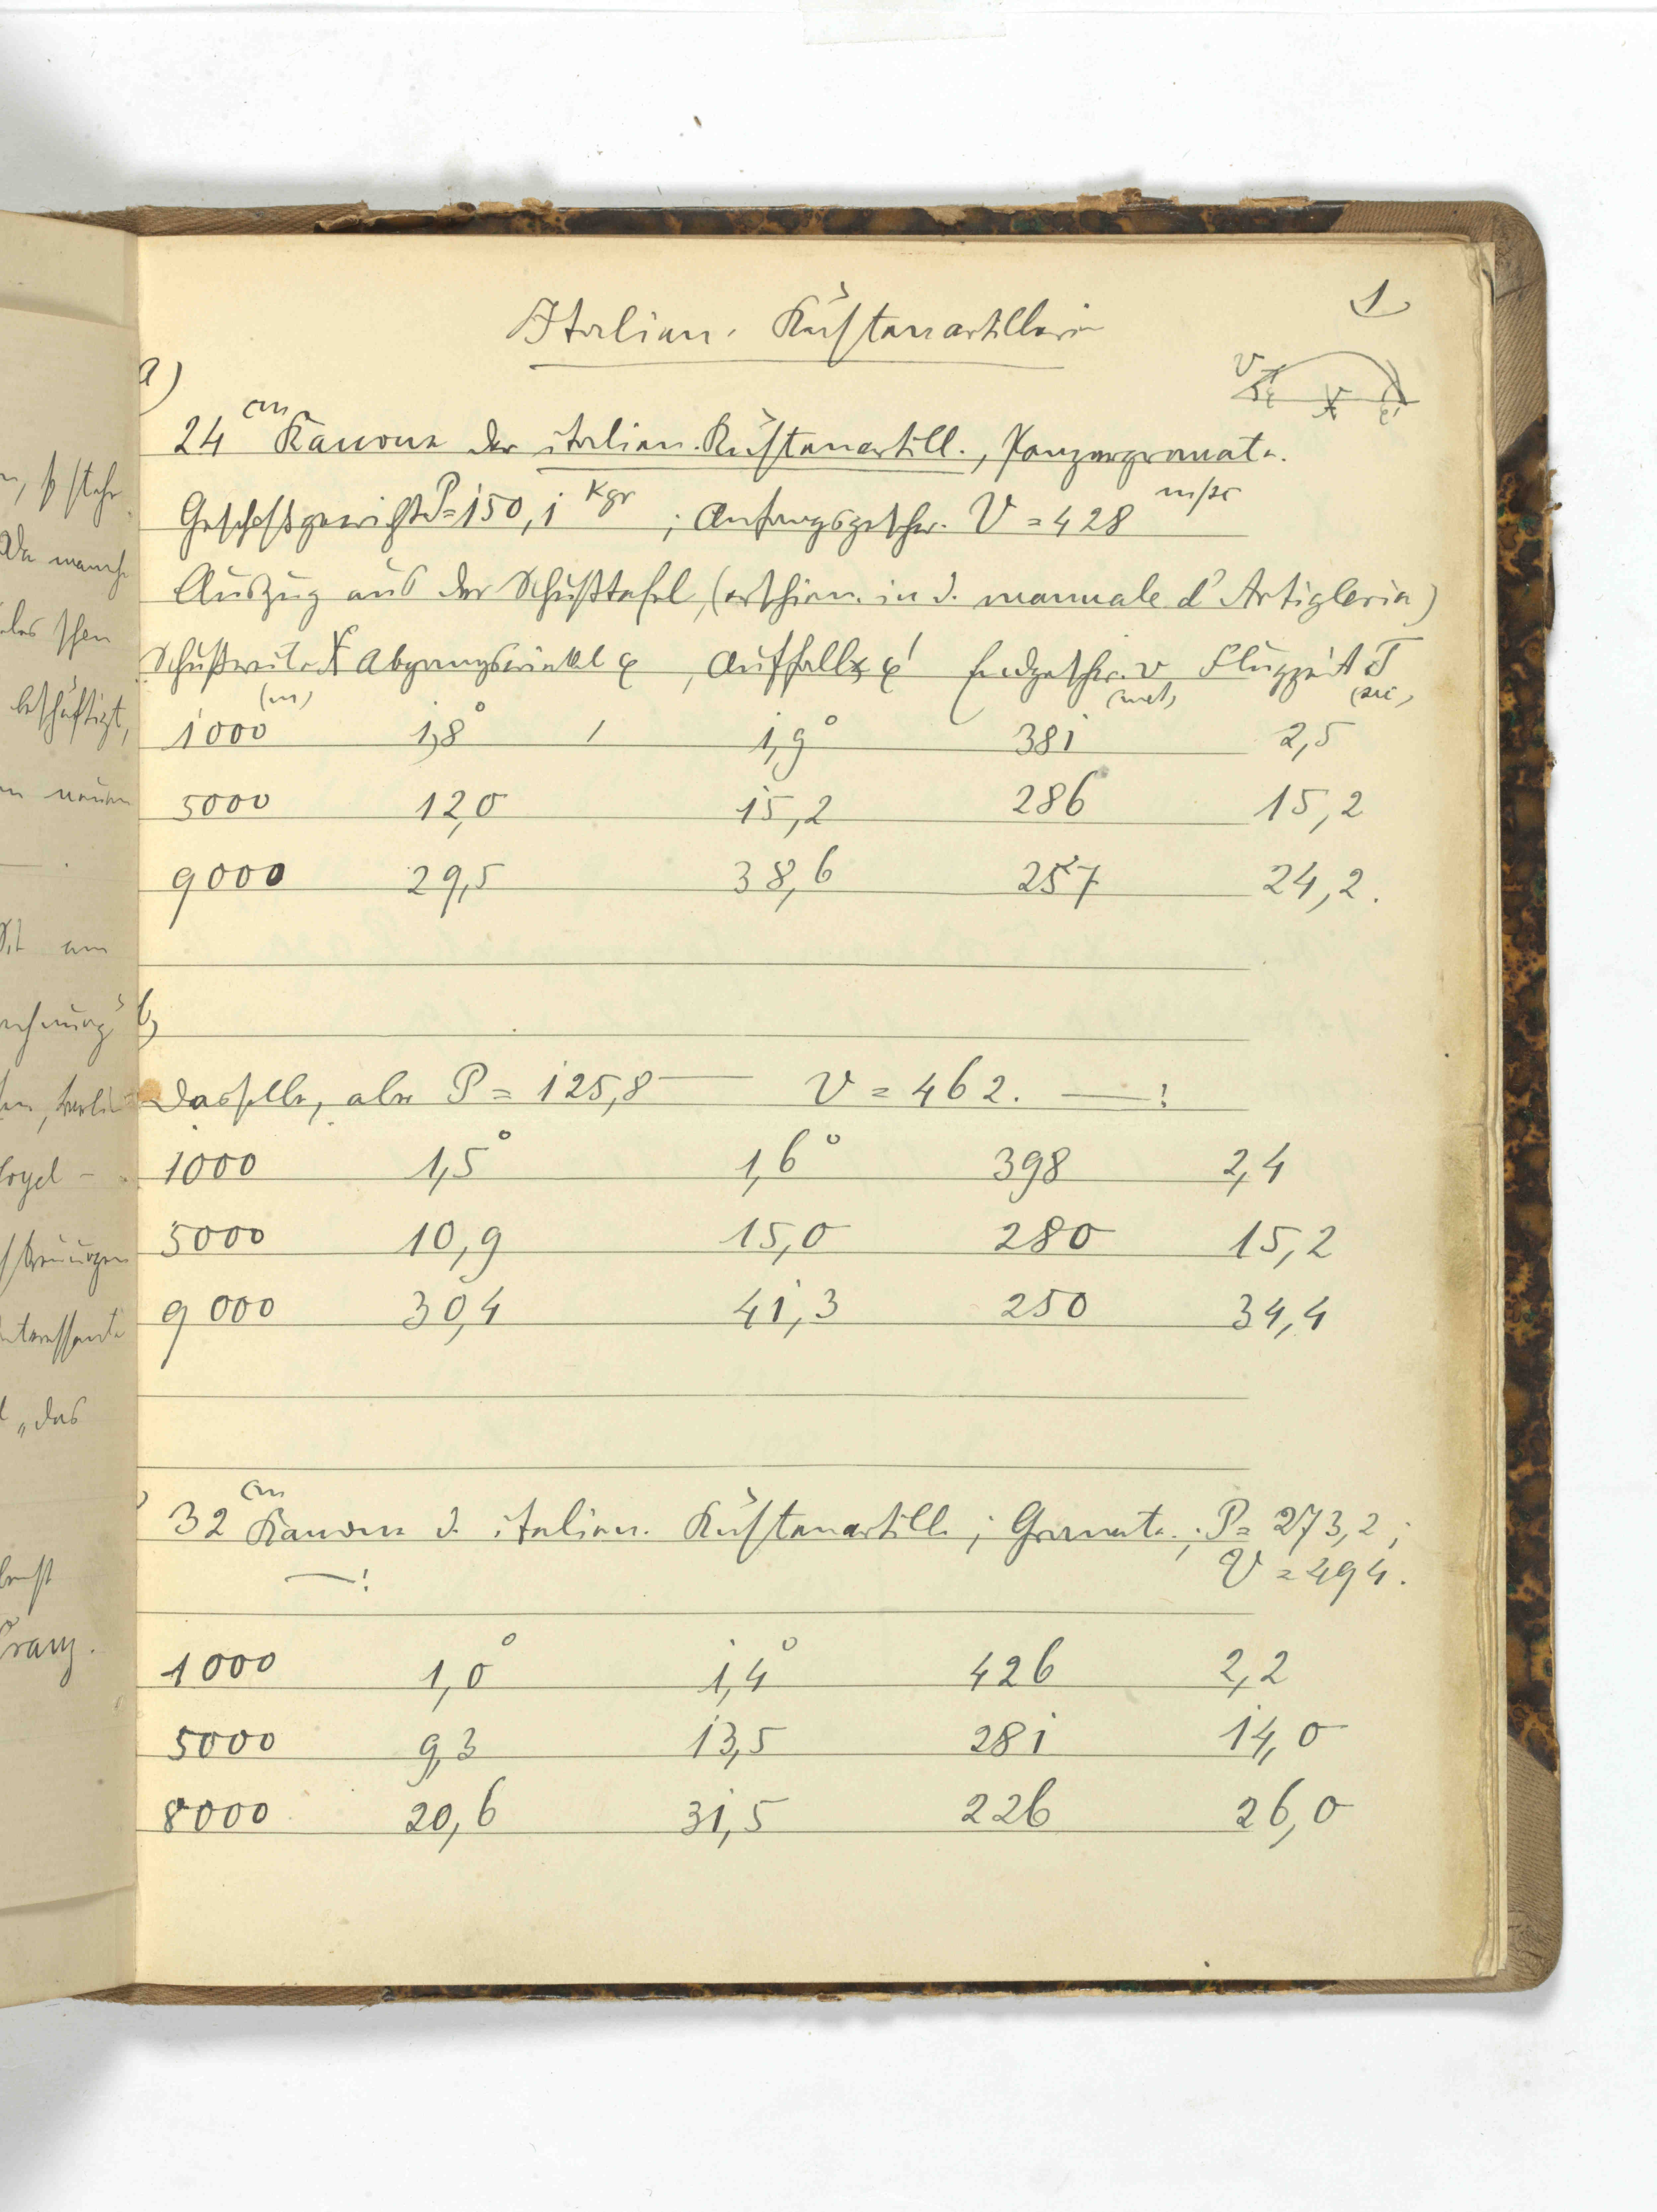 1
Italien. Küstenartillerie
V φ X φ'
a)
24 cm Kanone der italien. Küstenartill., Panzergranate.
Geschoßgewicht P = 150,1 Kgr ; Anfangsgeschw. V = 428 m/sec
Auszug aus der Schußtafel, (erschien. in d. manuale d'Artigleria)
Schußweite X (m) Abgangswinkel φ, Auffall∢ φ' Endgeschw. v (met) Flugzeit T (sec)
1000 1,8° 1,9° 381 2,5
5000 12,0 15,2 286 15,2
9000 29,5 38,6 257 24,2.
b)
Dasselbe, aber P = 125,8 — V = 462. —:
1000 1,5° 1,6° 398 2,4
5000 10,9 15,0 280 15,2
9000 30,4 41,3 250 34,4
32 cm Kanone d. italien. Küstenartill; Granate; P = 273,2;
—: V = 494.
1000 1,0° 1,4° 426 2,2
5000 9,3 13,5 281 14,0
8000 20,6 31,5 226 26,0
beschäftigt,
„das